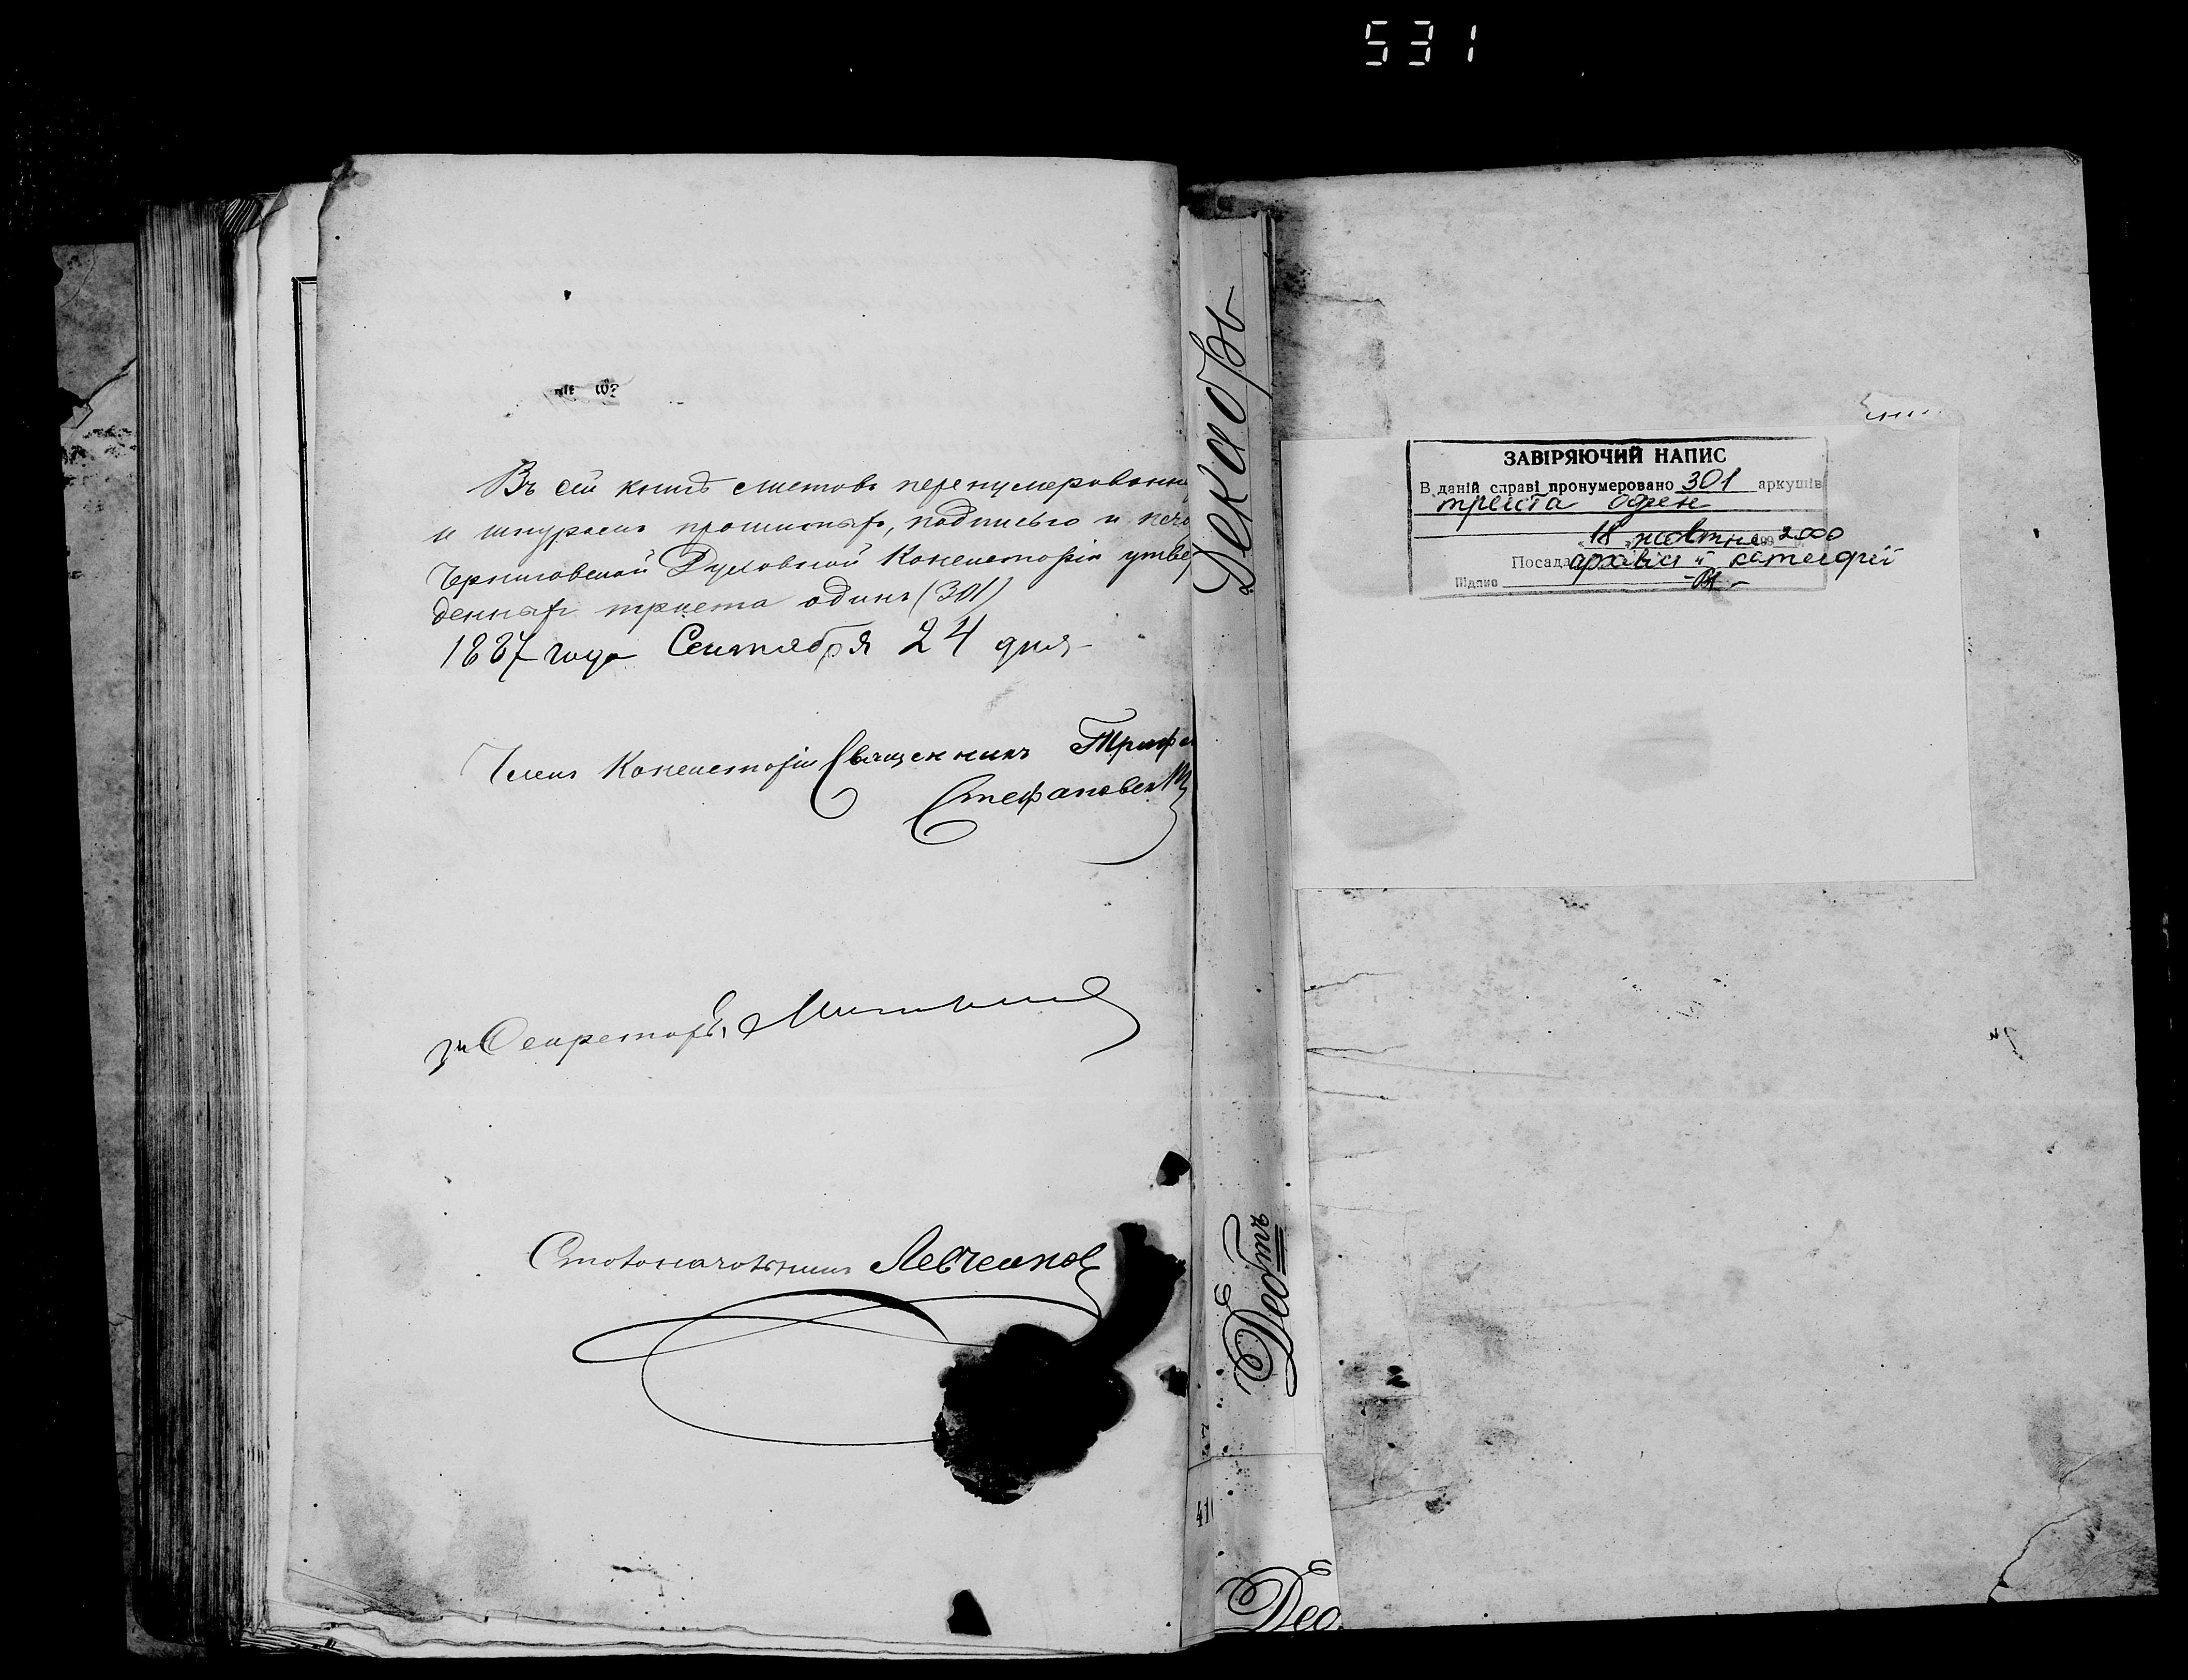 531
Въ сей книгѣ листовъ перенумерованны
и шнуромъ прошитыхъ, подписью и печа
Черниговской Духовной Консисторіи утвер
денныхъ триста одинъ (301)
1887 года Сентября 24 дня
Членъ Консисторіи Священникъ Триф
Стефановскій
Секретарь
Столоначальникъ Левченков
Декабрь
Дебтъ
41
Део
ЗАВІРЯЮЧИЙ НАПИС
В даній справі пронумеровано 301 аркушів
триста один
18 жовтня 2000
Посада архівіст II категорії
Підпис